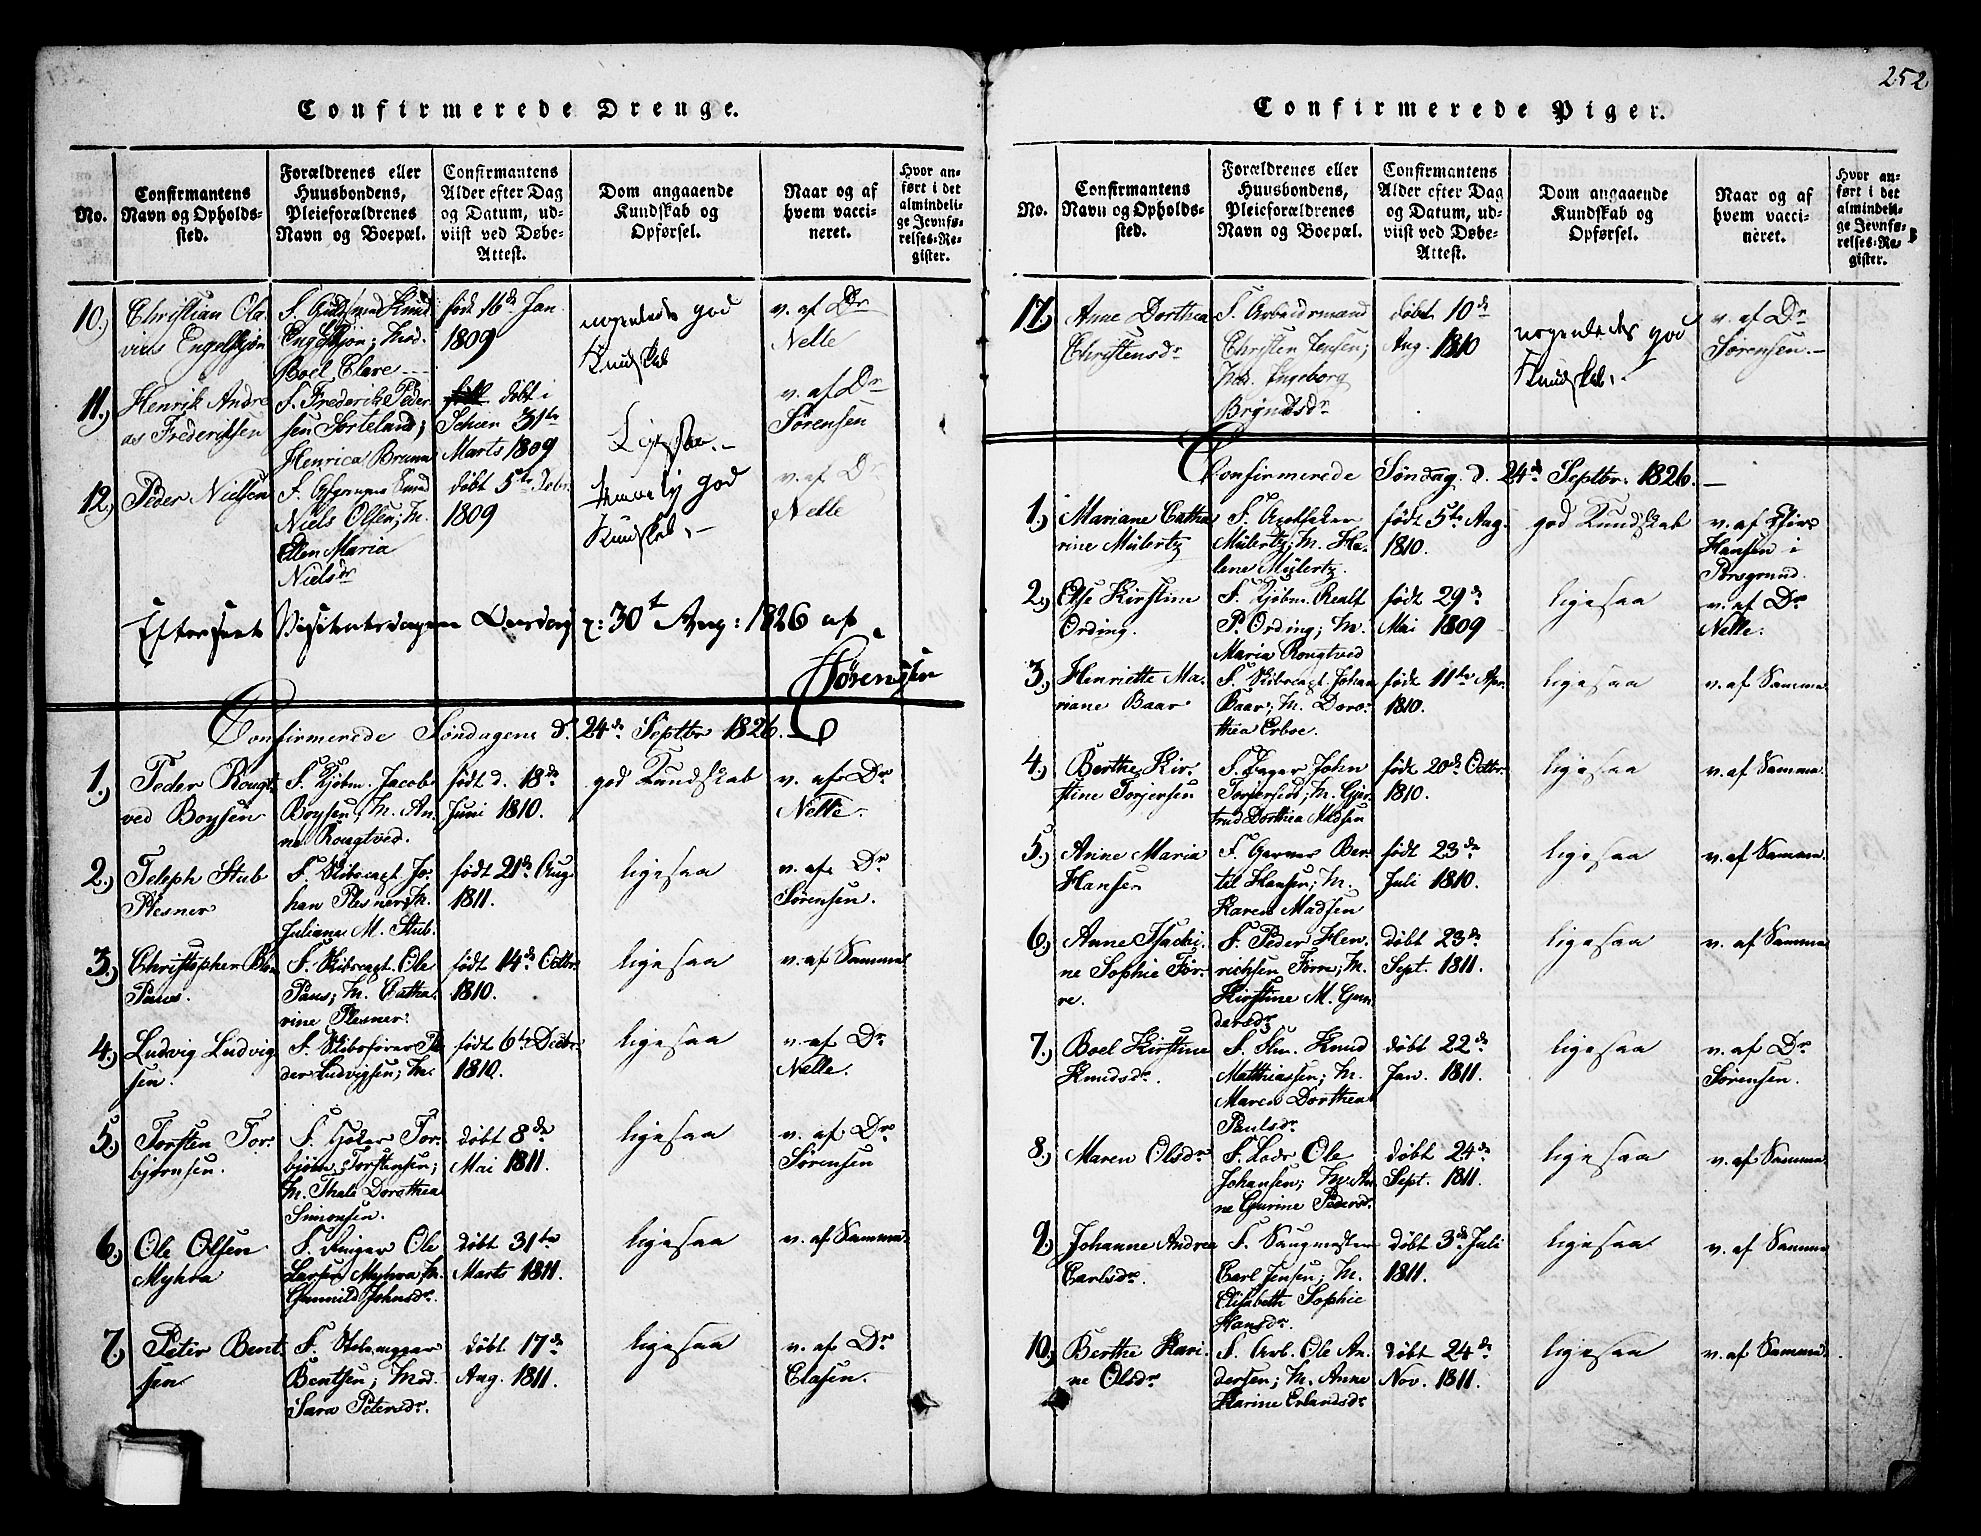 252
Confirmerede Drenge.
No.
Confirmantens
Navn og Opholds-
sted.
Forældrenes eller
Huusbondens,
Pleieforældrenes
Navn og Boepæl.
Confirmantens
Alder efter Dag
og Datum, ud-
viist ved Døbe-
Attest.
Dom angaaende
Kundskab og
Opførsel.
Naar og af
hvem vacci-
neret.
Hvor an-
ført i det
almindeli-
ge Jevnfø-
relses-Re-
gister.
10.) Christian Ola
vius Engelskjøn
F. Knud
Engelskjøn; Mod.
Boel Clare
født 16de Jan.
1809
nogenledes god
Kundskab
v. af Dr
Nelle
11.) Henrik Andre
as Frederiksen
F. Frederik Peder
sen Forteland;
Henrica Bruun
døbt i
Schien 31te
Marts 1809
Ligesaa.
v. af Dr
Sørensen
12.) Peder Nielsen
F.
Niels Olsen; M.
Ellen Maria
Nielsdr
døbt 5te Febr.
1809
temmelig god
Kundskab.
v. af Dr
Nelle
Efterseet Visitatsdagen Onsdag d: 30te Aug: 1826 af
Sørenssen
Confirmerede Søndagen d. 24de Septbr 1826.
1.) Peder Rougt
ved Boysen
F. Kjøbm. Jacob
Boysen, M. An
ne Rougtved.
født d. 18de
Juni 1810.
god Kundskab
v. af Dr
Nelle.
2.) Teleph Stub
Plesner
F. Skibscapt. Jo-
han Plesner; M.
Juliane M. Stub.
født 21de Aug.
1811.
ligesaa
v. af Dr
Sørensen.
3.) Christopher Blom
Paus.
F. Skibscapt. Ole
Paus; M. Catha-
rine Plesner.
født 14de Octbr.
1810.
ligesaa
v. af Samme
4.) Ludvig Ludvig
sen.
F. Skibsfører Pe
der Ludvigsen; M.
født 6te Decbr.
1810.
ligesaa
v. af Dr
Nelle.
5.) Torsten Tor-
bjørnsen.
F. Tor-
bjørn Torstensen;
M. Thale Dorothea
Simonsen.
døbt 8de
Mai 1811.
ligesaa
v. af Dr
Sørensen
6.) Ole Olsen
Myhra
F. Ole
Larsen Myhra M.
Gunnild Johnsdr.
døbt 31te
Marts 1811.
ligesaa
v. af Samme
7.) Peter Bent
sen
F.
Bentsen; Mod.
Sara Petersdr.
døbt 17de
Aug. 1811.
ligesaa
v. af Dr
Clasen.
Confirmerede Piger.
No.
Confirmantens
Navn og Opholds-
sted.
Forældrenes eller
Huusbondens,
Pleieforældrenes
Navn og Boepæl.
Confirmantens
Alder efter Dag
og Datum, ud-
viist ved Døbe-
Attest.
Dom angaaende
Kundskab og
Opførsel.
Naar og af
hvem vacci-
neret.
Hvor an-
ført i det
almindeli-
ge Jevnfø-
relses-Re-
gister.
17.) Anne Dorthea
Christensdr
F. Arbeidsmand
Christen Jensen;
Mod. Engeborg
Bryndsdr
døbt 10de
Aug. 1810
nogenledes god
Kundskab.
v. af Dr
Sørensen.
Confirmerede Søndag d. 24de Septbr. 1826.
1.) Mariane Catha
rine Mülertz
F. Apotheker
Mülertz; M. He-
lene Mülertz.
født 5te Aug.
1810.
god Kundskab
v. af
Hansen i
Porsgrund.
2.) Else Kirstine
Ording.
F. Kjøbm. Realf
P. Ording; M.
Maria Rougtved
født 29de
Mai 1809
ligesaa
v. af Dr
Nelle.
3.) Henriette Ma-
riane Baar
F. Skibscapt. Johan
Baar; M. Doro-
thea Erboe.
født 11te Apr.
1810.
ligesaa
v. af Samme
4.) Berthe Kir-
stine Torjersen
F. John
Torjersen; M. Gjer
trud Dorthea Madsen
født 20de Octbr.
1810.
ligesaa
v. af Samme
5.) Anne Maria
Hansen
F. Garver Ber-
til Hansen; M.
Karen Madsen
født 23de
Juli 1810.
ligesaa
v. af Samme.
6.) Anne Isachi-
ne Sophie Før-
re.
F. Peder Hen-
richsen Førre; M.
Kirstine M. Gun
dersdr.
døbt 23de
Sept. 1811.
ligesaa
v. af Samme
7.) Boel Kirstine
Knudsdr.
F. Knud
Matthiassen; M.
Maren Dorthea
Paulsdr.
døbt 22de
Jan. 1811.
ligesaa
v. af Dr
Sørensen.
8.) Maren Olsdr
F. Lods Ole
Johansen; M. An
ne Gurine Pedersdr.
døbt 24de
Sept. 1811.
ligesaa
v. af Samme
9.) Johanne Andrea
Carlsdr.
F. Saugmester
Carl Jensen; M.
Elisabeth Sophie
Hansdr.
døbt 3de Juli
1811.
ligesaa
v. af Samme
10.) Berthe Kari-
ne Olsdr
F. Arb. Ole An-
dersen; M. Anne
Karine Erlandsdr
døbt 24de
Nov. 1811.
ligesaa
v. af Samme.